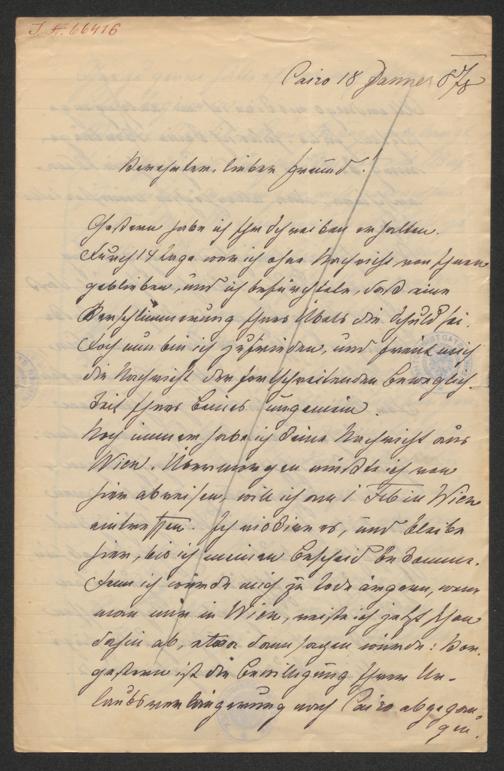 I.N. 66416
Cairo 18 Jänner 878
Verehrter, lieber Freund!
Gestern habe ich Ihr Schreiben erhalten.
Durch 14 Tage war ich ohne Nachricht von Ihnen
geblieben, und ich befürchtete, daß eine
Verschlimmerung Ihres Übels die Schuld sei.
Doch nun bin ich zufrieden, und freut mich
die Nachricht der fortschreitenden Beweglich-
keit Ihres Beines ungemein.
Noch immer habe ich keine Nachricht aus
Wien. Übermorgen müßte ich von
hier abreisen, will ich am 1 Feb in Wien
eintreffen. Ich riskiere es, und bleibe
hier, bis ich meinen Bescheid bekomme.
Denn ich würde mich zu Tode ärgern, wenn
man mir in Wien, reiste ich jetzt schon
dahin ab, etwa dann sagen würde: Vor-
gestern ist die Bewilligung Ihrer Ur-
laubsverlängerung nach Cairo abgegan-
gen.